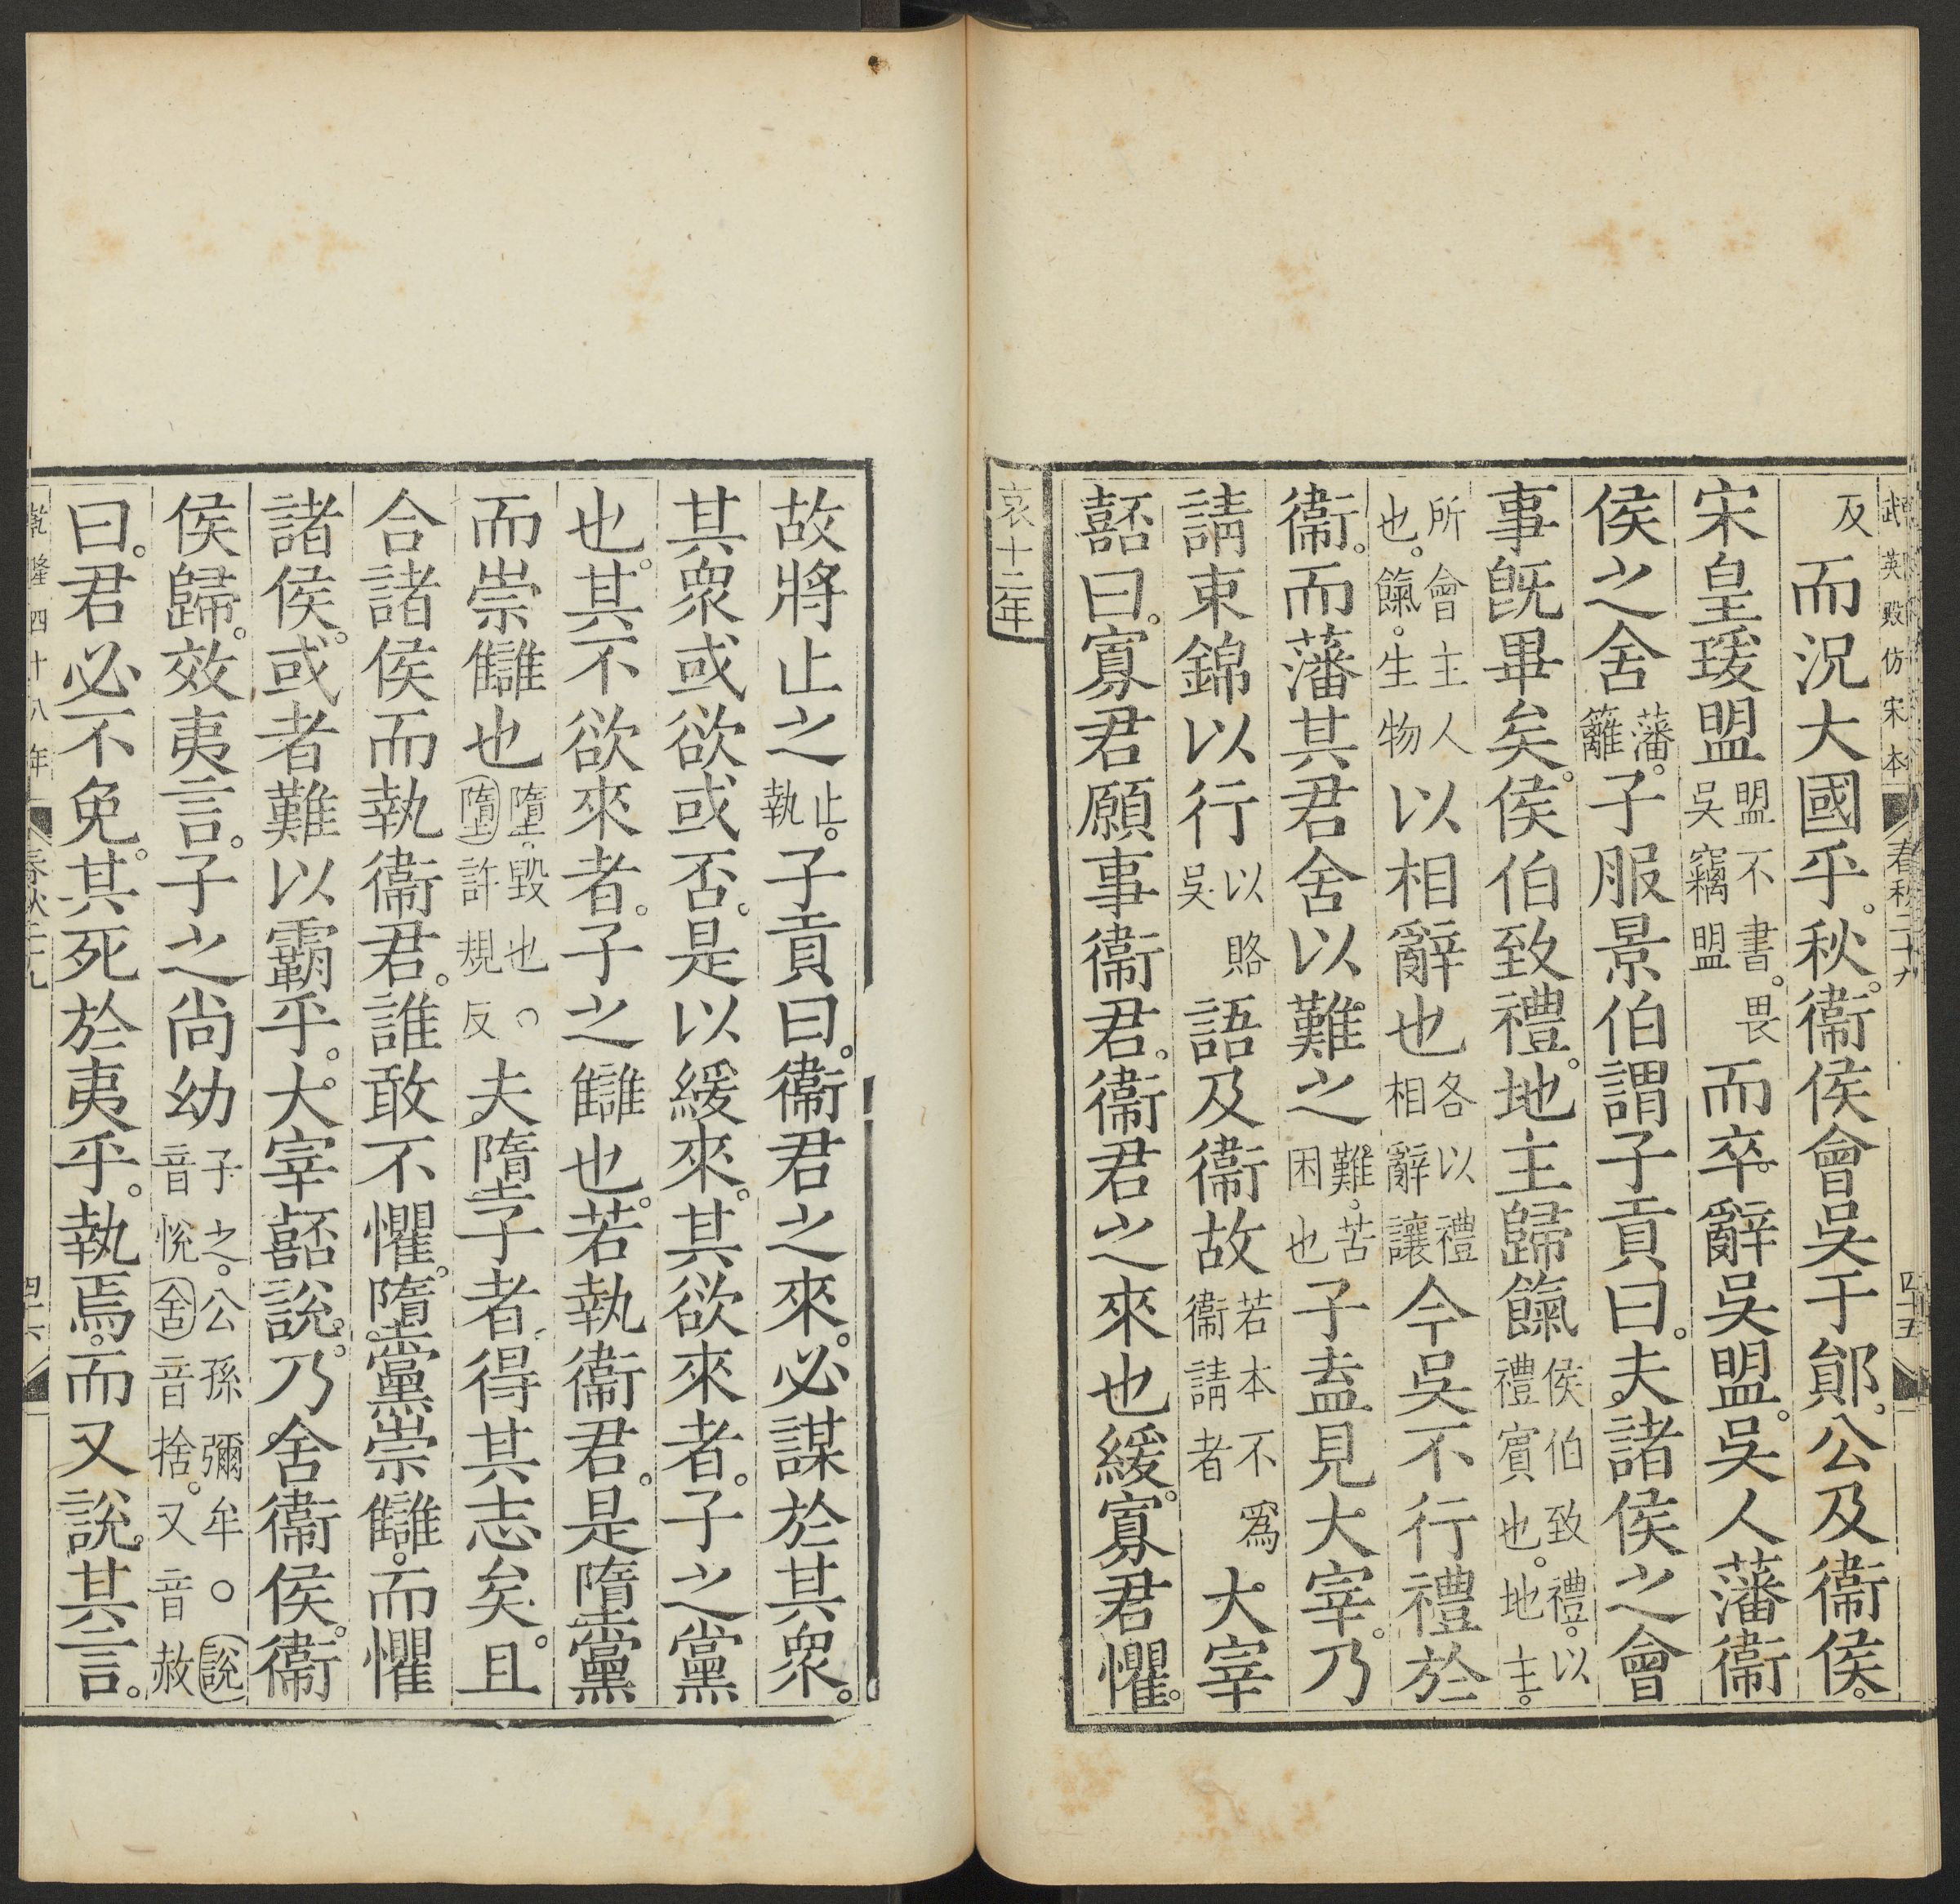 武英殿仿宋本 春秋二十九 四十五
反而況大國乎。秋。衞侯會吳于鄖。公及衞侯。
宋皇瑗盟盟不書。畏吳竊盟而卒辭吳盟。吳人藩衞
侯之舍藩。籬子服景伯謂子貢曰。夫諸侯之會
事旣畢矣。侯伯致禮。地主歸餼侯伯致禮。以禮賓也。地主。
所會主人也。餼。生物以相辭也各以禮相辭讓今吳不行禮於
衞。而藩其君舍以難之難。苦困也子盍見大宰。乃
請束錦以行以賂吳語及衞故若本不爲衞請者大宰
嚭曰。寡君願事衞君。衞君之來也緩。寡君懼。
哀十二年
故將止之止。執子貢曰。衞君之來。必謀於其衆。
其衆或欲或否。是以緩來。其欲來者。子之黨
也。其不欲來者。子之讎也。若執衞君。是墮黨
而崇讎也墮。毀也。○墮許規反夫墮子者。得其志矣。且
合諸侯而執衞君。誰敢不懼。墮黨崇讎。而懼
諸侯。或者難以霸乎。大宰嚭說。乃舍衞侯。衞
侯歸。效夷言。子之尚幼子之。公孫彌牟。○說音悅舍音捨。又音赦
曰。君必不免。其死於夷乎。執焉。而又說其言。
乾隆四十八年 春秋二十九 四十六